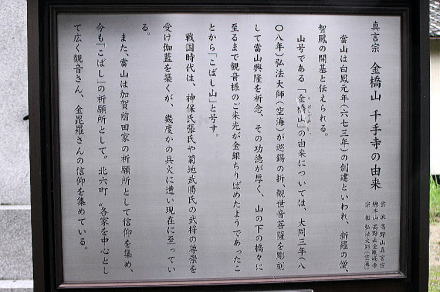 真言宗 金橋山 千手寺の由来
宗派 高野山真言宗
總本山 高野山金剛峯寺
宗祖 弘法大師(空海)
當山は白鳳元年(六七三年)の創建といわれ、新羅の僧、
智鳳の開基と伝えられる。
山号である「金橋山」の由来については、大同三年(八
〇八年)弘法大師(空海)が巡錫の折、観世音菩薩を彫刻
して當山興隆を祈念、その功徳が厚く、山の下の橋々に
至るまで観音様のご来光が金銀ちりばめたようであったこ
とから「こばし山」と号す。
戦国時代は、神保氏張氏や菊地武勝氏の武将の尊崇を
受け伽藍を築くが、幾度かの兵火に遭い現在に至ってい
る。
また、當山は加賀前田家の祈願所として信仰を集め、
今も「こばし」の祈願所として。北六町、各家を中心とし
て広く観音さん、金毘羅さんの信仰を集めている。